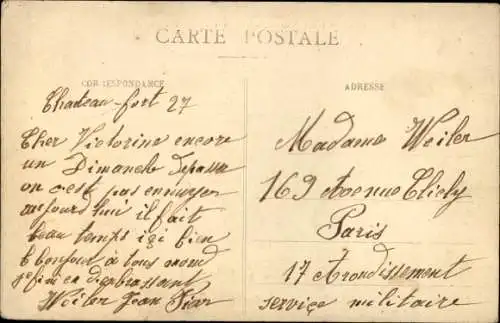 CARTE POSTALE
CORRESPONDANCE
ADRESSE
Chateau-fort 27
Cher Victorine encore
un Dimanche de passé
on c'est pas ennuyer
aujourd'hui il fait
beau temps içi bien
le bonjour à tous
je fini en
Weiler Jean
Madame Weiler
169 Avenue Clichy
Paris
17 Arondissement
service militaire